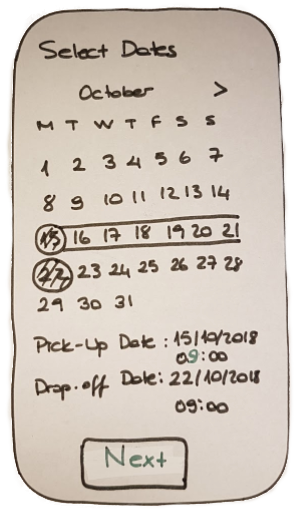 Select Dates
October >
M T W T F S S
1 2 3 4 5 6 7
8 9 10 11 12 13 14
15 16 17 18 19 20 21
22 23 24 25 26 27 28
29 30 31
Pick-Up Date : 15/10/2018
09:00
Drop-off Date: 22/10/2018
09:00
Next